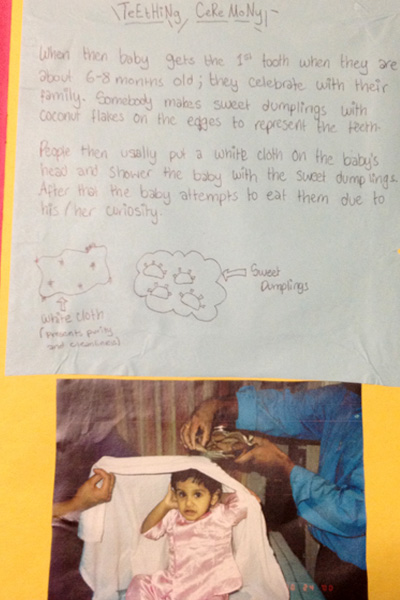 TEETHING CEREMONY
When then baby gets the 1st tooth when they are
about 6-8 months old; they celebrate with their
family. Somebody makes sweet dumplings with
coconut flakes on the edges to represent the teeth.
People then usually put a white cloth on the baby's
head and shower the baby with the sweet dumplings.
After that the baby attempts to eat them due to
his/her curiosity.
Sweet
Dumplings
White cloth
purity
and cleanliness)
24 00